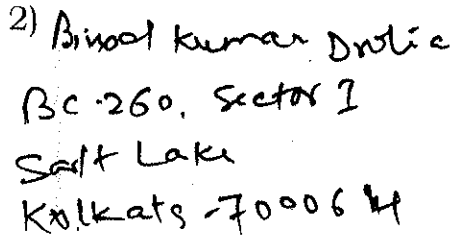 2) Binod Kumar Drolia
BC-260, Sector I
Salt Lake
Kolkata-700064